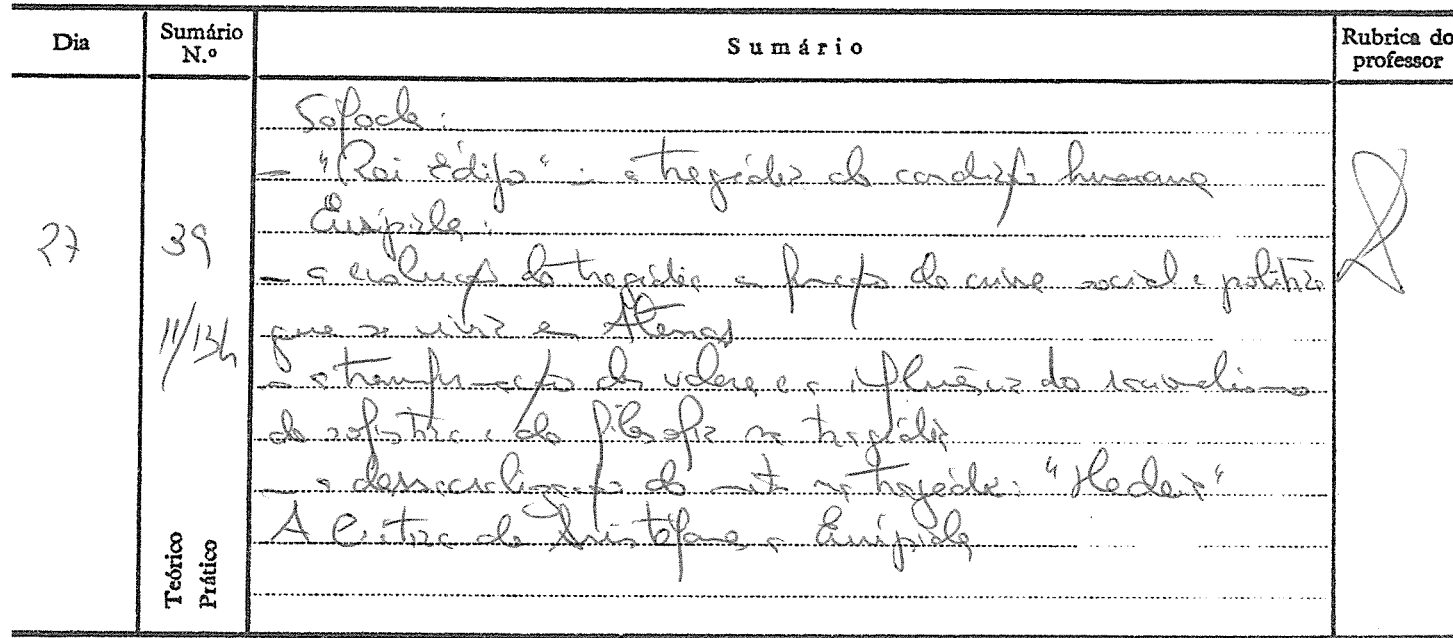 Dia
Sumário N.º
Sumário
Rubrica do professor
27
39
11/13h
Teórico
Prático
Sófocles:
- "Rei Édipo" - a tragédia da condição humana
Eurípides:
- a evolução da tragédia em função da crise social e política
que se vivia em Atenas
- a transformação dos valores e a influência do
da sofística e da filosofia na tragédia
- a dessacralização do mito na tragédia: "Medeia"
A Crítica de Aristófanes a Eurípides